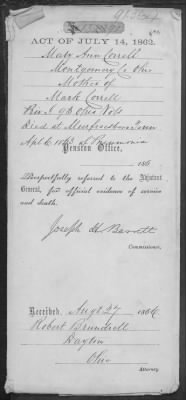 ACT OF JULY 14, 1862.
Mary Ann Correll
Montgomery Co Ohio
Mother of
Mark Correll
Priv. I 93 Ohio Vols
Died at Murfreesboro Tenn
Apl 6, 1863 of Pneumonia
Pension Office,
186
Respectfully referred to the Adjutant
General, for official evidence of service
and death.
Joseph H Barrett
Commissioner.
Received, Augt 27 1864
Robert Brundrell
Dayton
Ohio
Attorney